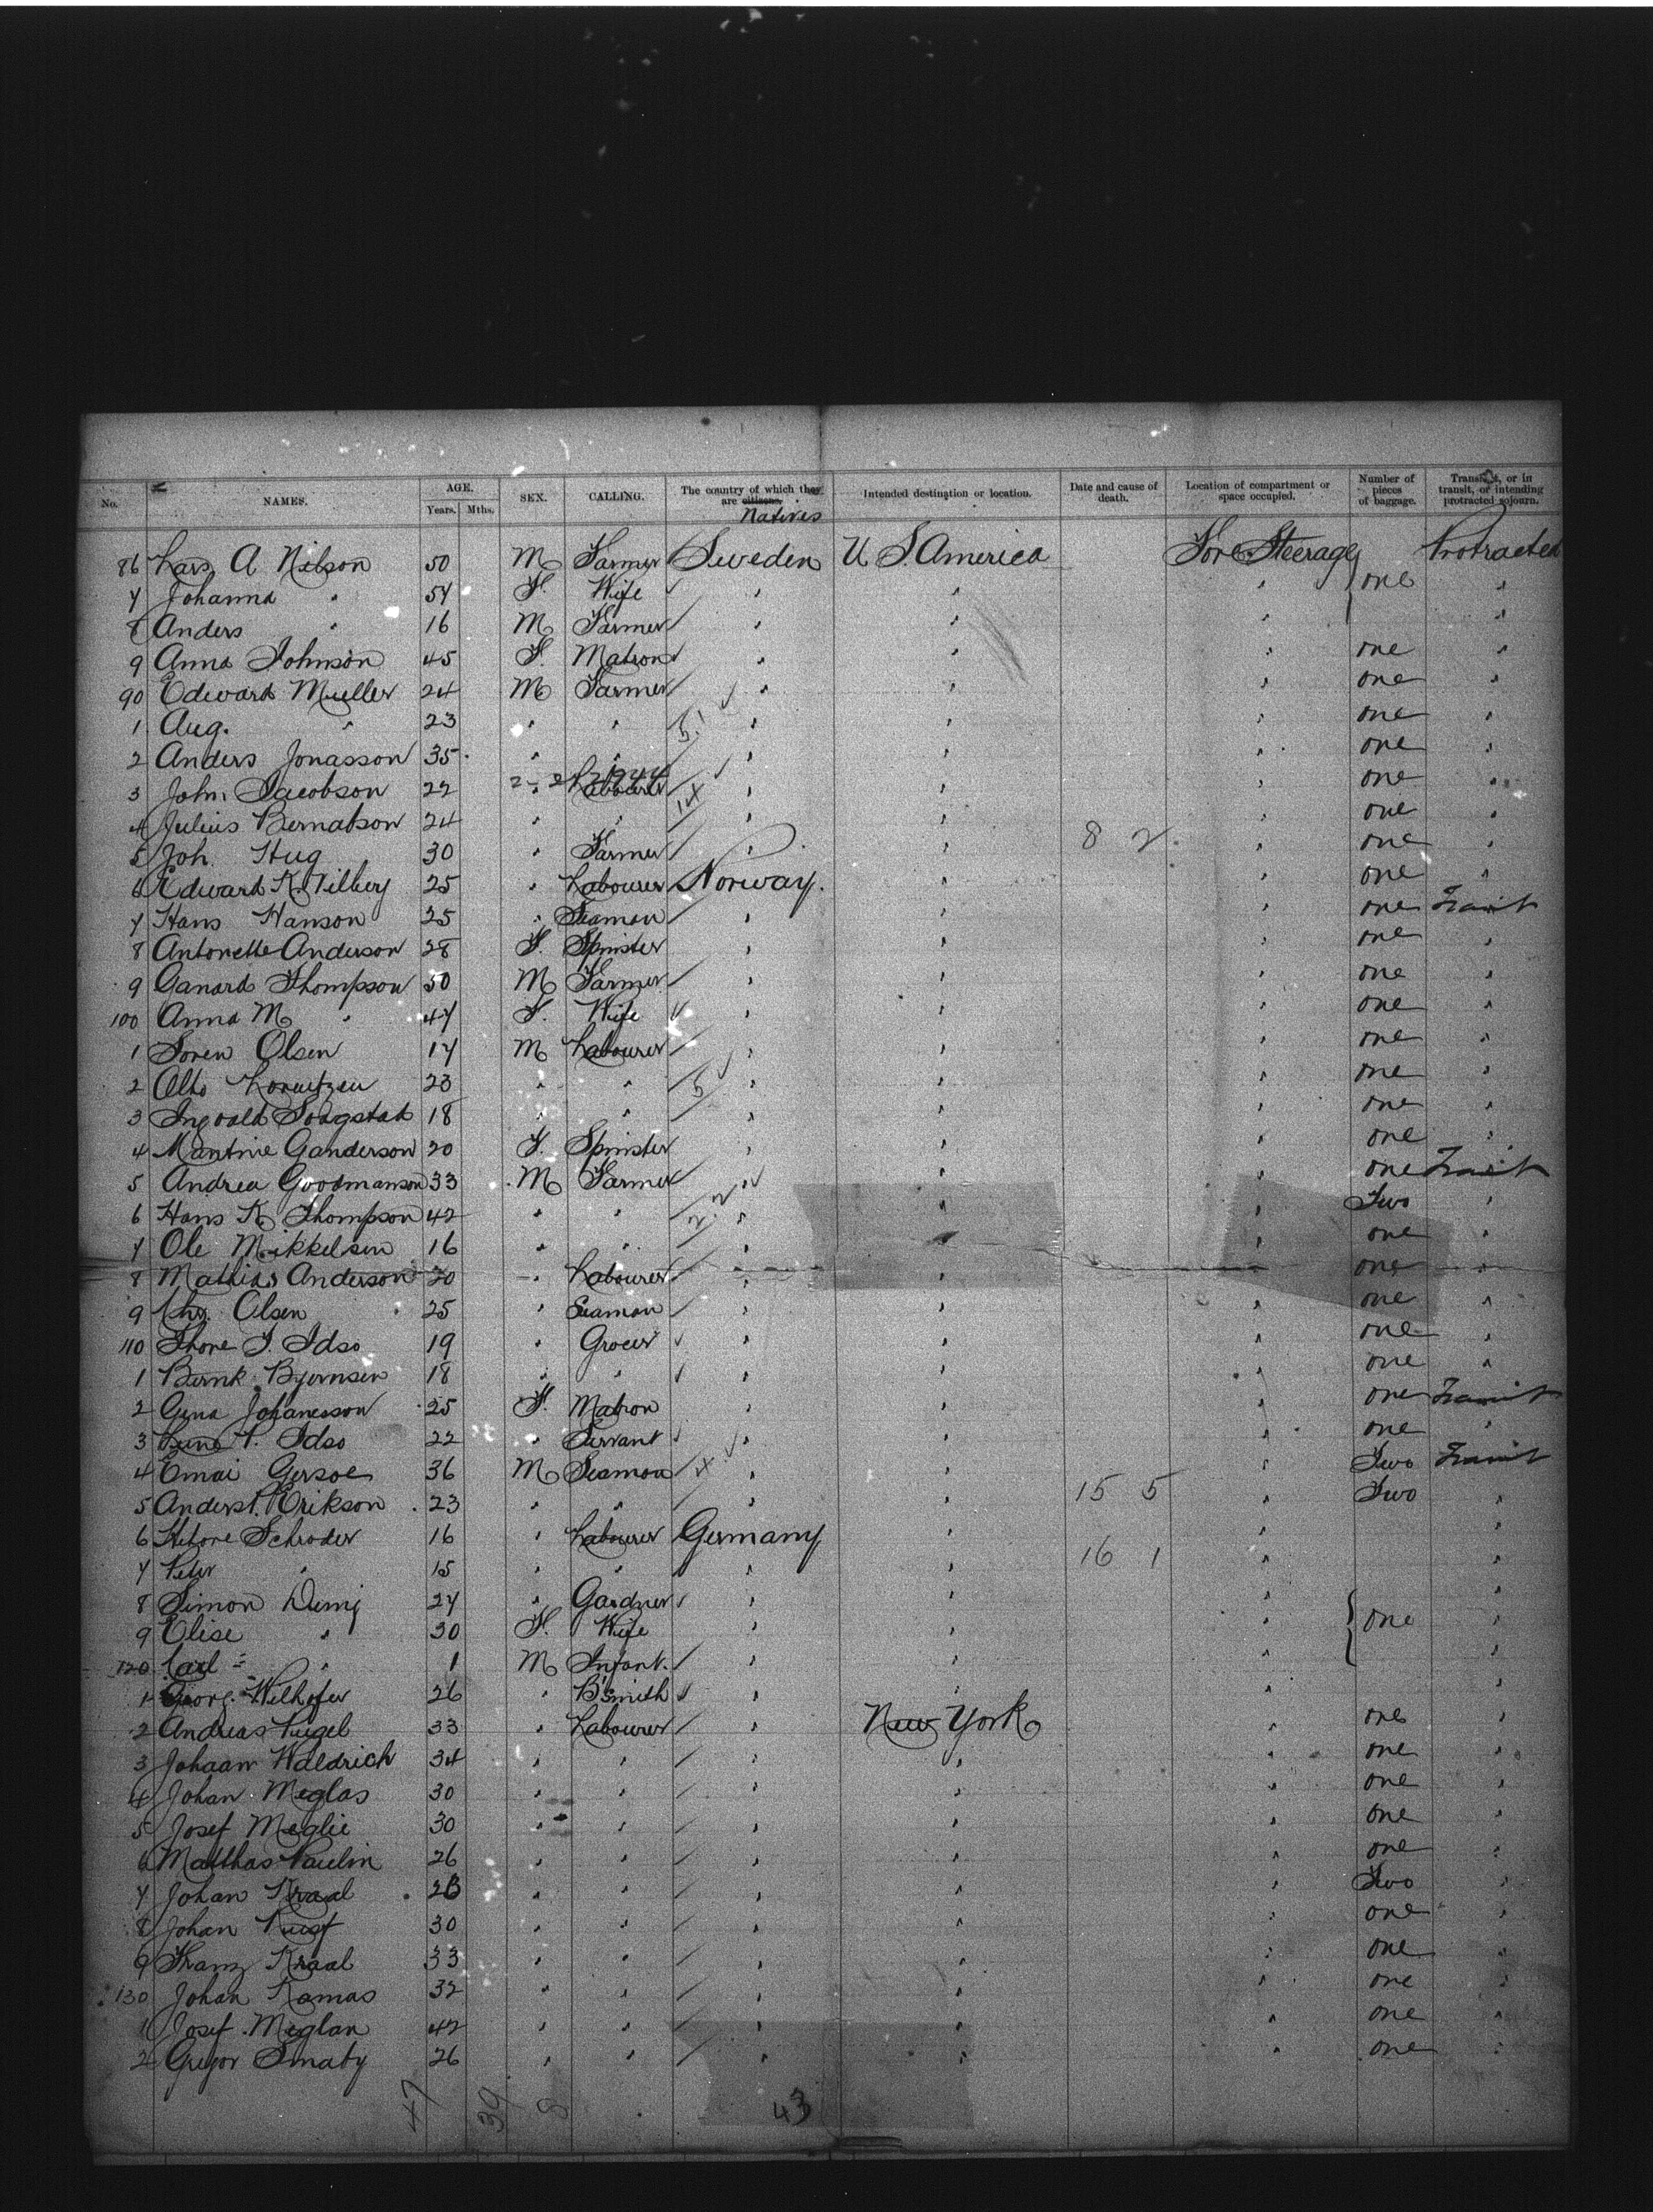 No. NAMES. AGE. Years. Mths. SEX. CALLING. The country of which they are citizens. Natives Intended destination or location. Date and cause of death. Location of compartment or space occupied. Number of pieces of baggage. Transient, or in transit, or intending protracted sojourn.
86 Lars A Nilson 50 M Farmer Sweden U S. America Fore Steerage Protracted
7 Johanna " 54 F. Wife " " " one "
8 Anders " 16 M Farmer " " " "
9 Anna Johnson 45 F. Matron " " " one "
90 Edward Muller 24 M Farmer " " " one "
1 Aug. " 23 " " " " " one "
2 Anders Jonasson 35 " " " " " one "
3 John Jacobson 22 " Labourer " " " one "
4 Julius Bernatson 24 " " " " " one "
5 Joh. Hug 30 " Farmer " " 8 2 " one "
6 Edward K. Tilbey 25 " Labourer Norway. " " one "
7 Hans Hanson 25 " Seaman " " " one Transit
8 Antonette Anderson 28 F. Spinster " " " one "
9 Ganard Thompson 50 M Farmer " " " one "
100 Anna M " 47 F. Wife " " " one "
1 Soren Olsen 17 M Labourer " " " one "
2 Otto Lorentzen 23 " " " " " one "
3 Ingvald Sorgstad 18 " " " " " one "
4 Mantine Ganderson 20 F. Spinster " " " one "
5 Andrea Goodmanson 33 M Farmer " " " one Transit
6 Hans K. Thompson 42 " " " " " Two "
7 Ole Mikkelsen 16 " " " " " one "
8 Mathias Anderson 20 " Labourer " " " one "
9 Chr. Olsen 25 " Seaman " " " one "
110 Thore T. Idso 19 " Grocer " " " one "
1 Bernt Bjornsen 18 " " " " " one "
2 Gena Johanesson 25 F. Matron " " " one Transit
3 T. Idso 22 " Servant " " " one "
4 Emai Gersoe 36 M Seaman " " " Two Transit
5 Anders T. Erikson 23 " " " " 15 5 " Two "
6 Schroder 16 " Labourer Germany " " "
7 Peter " 15 " " " " 16 1 " "
8 Simon 24 " Gardner " " " "
9 Elise " 30 F. Wife " " " one "
120 Carl " 1 M Infant. " " " "
1 Georg. Wilhofer 26 " B'smith " " " "
2 Andreas Pugel 33 " Labourer " New York " one "
3 Johaan Waldrich 34 " " " " " one "
4 Johan Meglas 30 " " " " " one "
5 Josef Meglie 30 " " " " " one "
6 Matthas Paulin 26 " " " " " one "
7 Johan Kraal 26 " " " " " Two "
8 Johan 30 " " " " " one "
9 Franz Kraal 33 " " " " " one "
130 Johan Ramas 32 " " " " " one "
1 Josef Meglan 42 " " " " " one "
2 Gregor Smaty 26 " " " " " one "
47 39 8 43